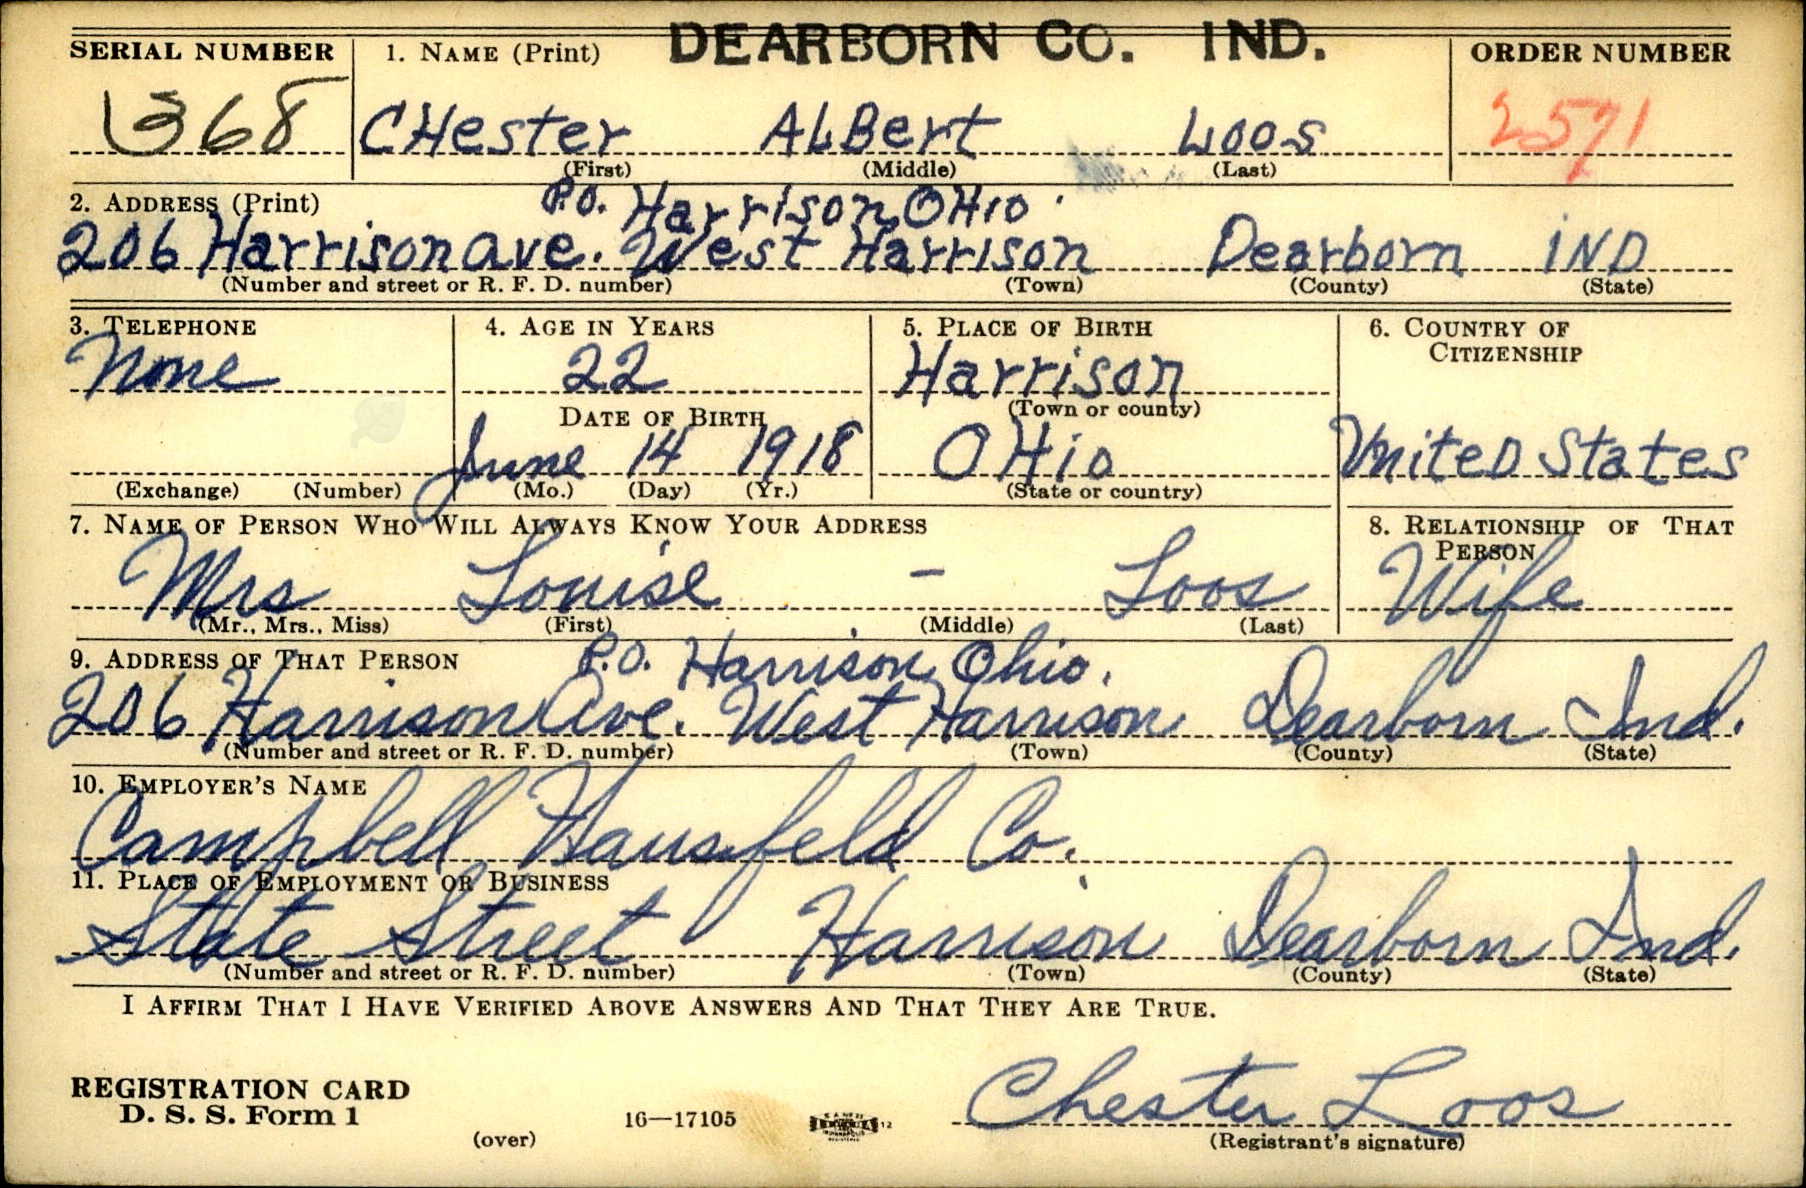 DEARBORN CO. IND.
SERIAL NUMBER 1. NAME (Print) ORDER NUMBER
1368 CHester ALBert Loos 2571
(First) (Middle) (Last)
2. ADDRESS (Print) P.O. Harrison, OHio.
206 Harrison ave. West Harrison Dearborn IND
(Number and street or R. F. D. number) (Town) (County) (State)
3. TELEPHONE 4. AGE IN YEARS 5. PLACE OF BIRTH 6. COUNTRY OF CITIZENSHIP
None 22 Harrison
DATE OF BIRTH (Town or county)
June 14 1918 OHio UniteD States
(Exchange) (Number) (Mo.) (Day) (Yr.) (State or country)
7. NAME OF PERSON WHO WILL ALWAYS KNOW YOUR ADDRESS 8. RELATIONSHIP OF THAT PERSON
Mrs Louise - Loos Wife
(Mr., Mrs., Miss) (First) (Middle) (Last)
9. ADDRESS OF THAT PERSON P.O. Harrison, Ohio.
206 Harrison Ave. West Harrison Dearborn Ind.
(Number and street or R. F. D. number) (Town) (County) (State)
10. EMPLOYER'S NAME
Campbell Hausfeld Co.
11. PLACE OF EMPLOYMENT OR BUSINESS
State Street Harrison Dearborn Ind.
(Number and street or R. F. D. number) (Town) (County) (State)
I AFFIRM THAT I HAVE VERIFIED ABOVE ANSWERS AND THAT THEY ARE TRUE.
REGISTRATION CARD
D. S. S. Form 1 Chester Loos
(over) 16—17105 12 (Registrant's signature)